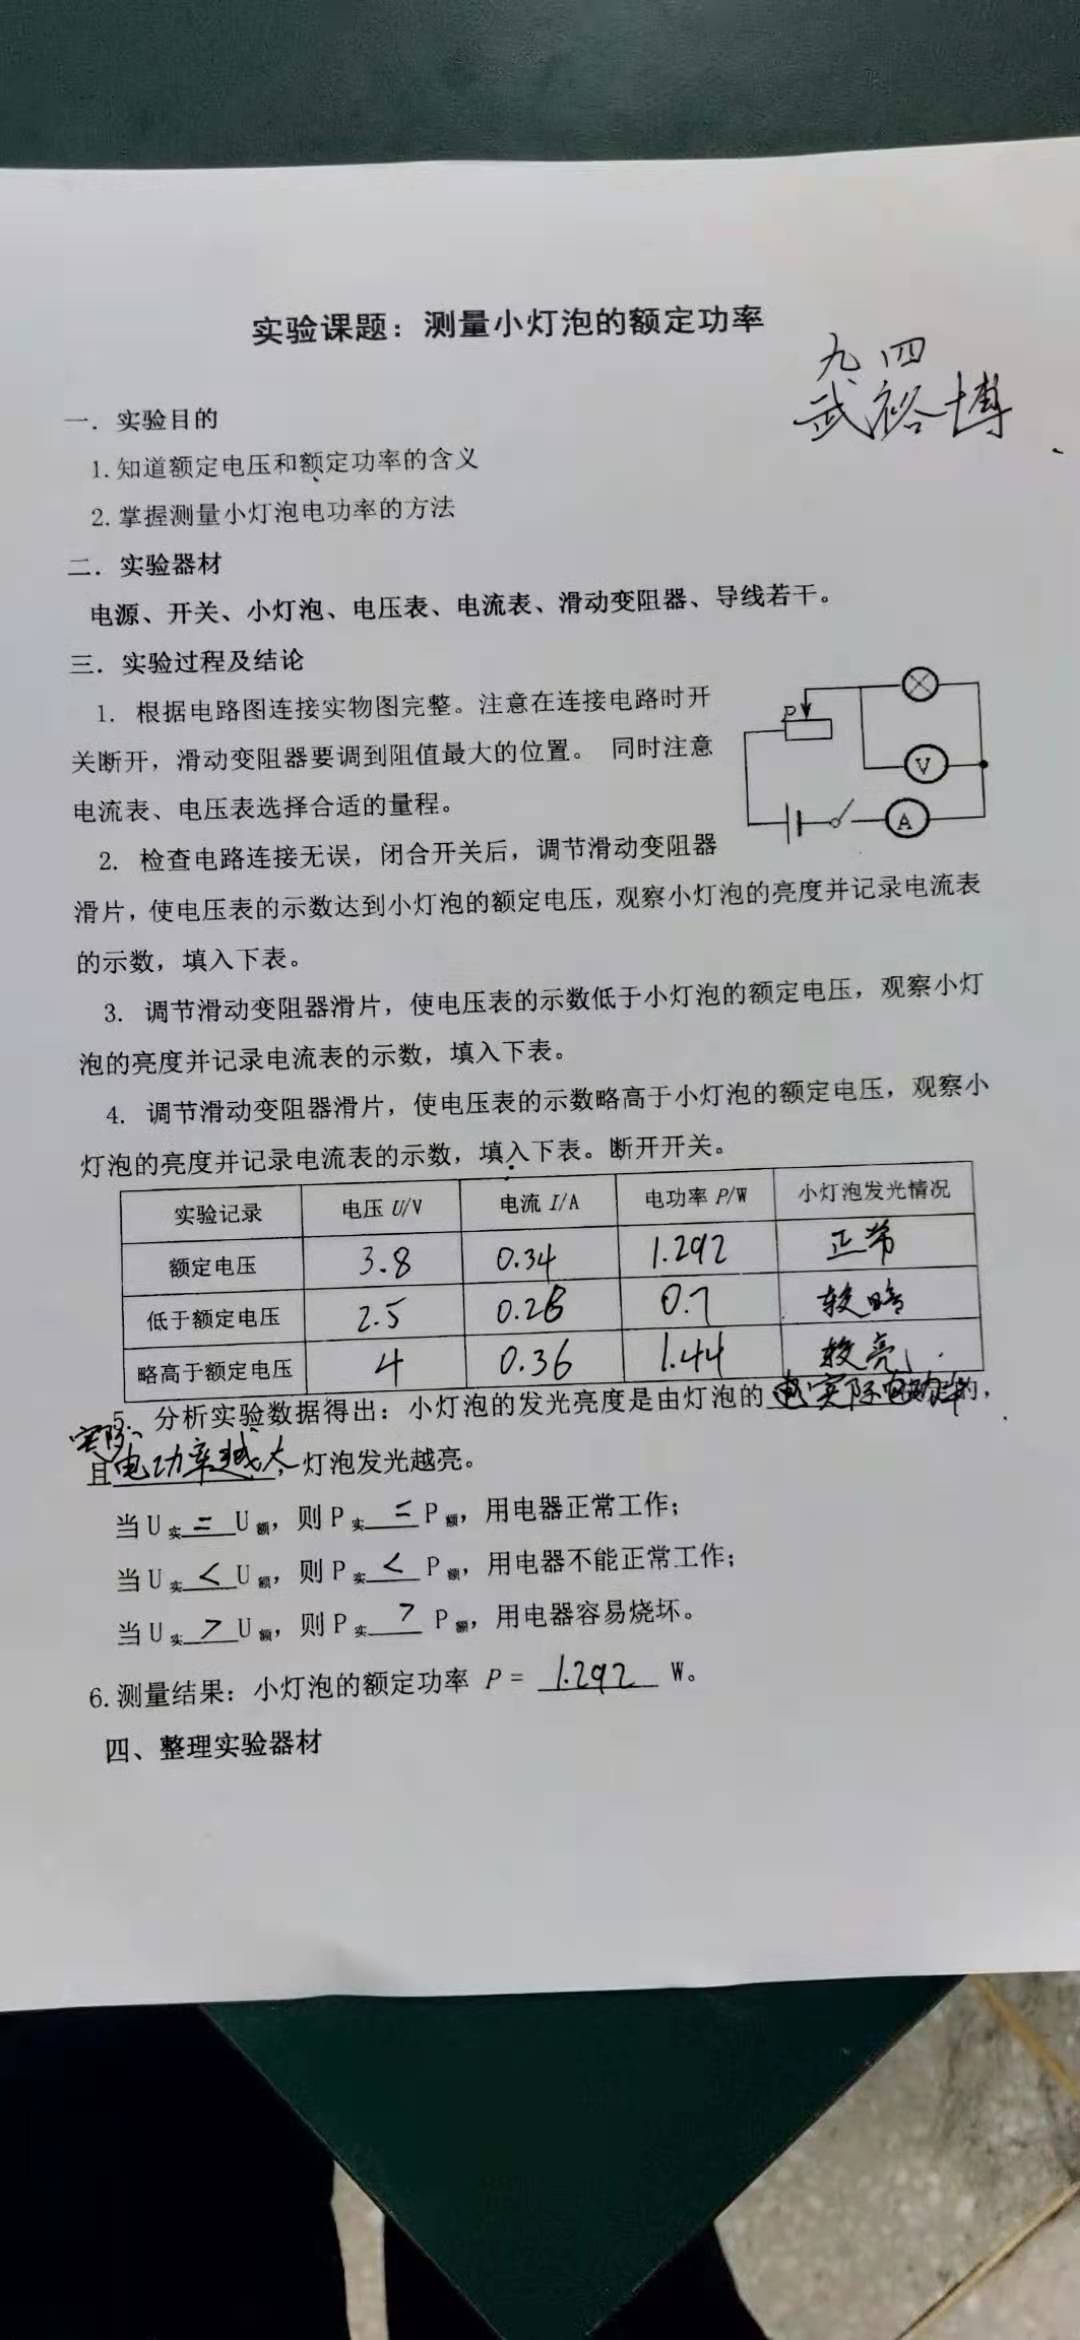 实验课题：测量小灯泡的额定功率
九四
武裕博
一．实验目的
1.知道额定电压和额定功率的含义
2.掌握测量小灯泡电功率的方法
二．实验器材
电源、开关、小灯泡、电压表、电流表、滑动变阻器、导线若干。
三．实验过程及结论
1. 根据电路图连接实物图完整。注意在连接电路时开
关断开，滑动变阻器要调到阻值最大的位置。 同时注意
电流表、电压表选择合适的量程。
P
V
A
2. 检查电路连接无误，闭合开关后，调节滑动变阻器
滑片，使电压表的示数达到小灯泡的额定电压，观察小灯泡的亮度并记录电流表
的示数，填入下表。
3. 调节滑动变阻器滑片，使电压表的示数低于小灯泡的额定电压，观察小灯
泡的亮度并记录电流表的示数，填入下表。
4. 调节滑动变阻器滑片，使电压表的示数略高于小灯泡的额定电压，观察小
灯泡的亮度并记录电流表的示数，填入下表。断开开关。
实验记录 电压 U/V 电流 I/A 电功率 P/W 小灯泡发光情况
额定电压 3.8 0.34 1.292 正常
低于额定电压 2.5 0.28 0.7 较暗
略高于额定电压 4 0.36 1.44 较亮
5. 分析实验数据得出：小灯泡的发光亮度是由灯泡的 实际电功率 的，
实际
且电功率越大，灯泡发光越亮。
当 U实 = U额，则 P实 = P额，用电器正常工作；
当 U实 < U额，则 P实 < P额，用电器不能正常工作；
当 U实 > U额，则 P实 > P额，用电器容易烧坏。
6.测量结果：小灯泡的额定功率 P = 1.292 W。
四、整理实验器材